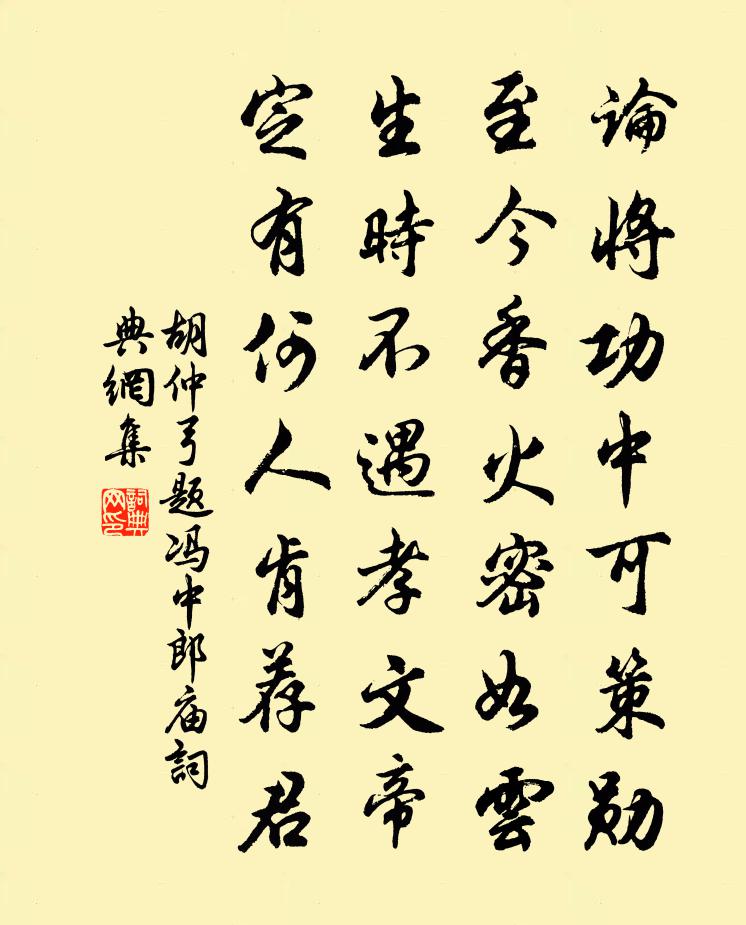 論將功中可策勋
至今香火密如雲
生時不遇孝文帝
定有何人肯荐君
胡仲弓题冯中郎庙詞
典網集
詞典网印